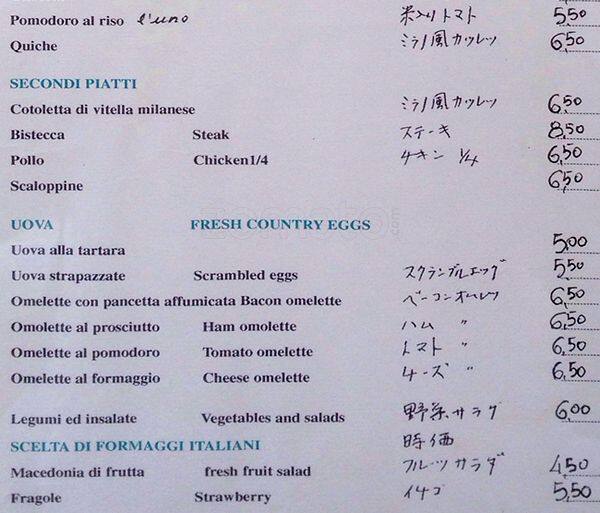 Pomodoro al riso l'uno 米入りトマト 5,50
Quiche ミラノ風カツレツ 6,50
SECONDI PIATTI
Cotoletta di vitella milanese ミラノ風カツレツ 6,50
Bistecca Steak ステーキ 8,50
Pollo Chicken1/4 チキン 1/4 6,50
Scaloppine 6,50
UOVA FRESH COUNTRY EGGS
Uova alla tartara 5,00
Uova strapazzate Scrambled eggs スクランブルエッグ 5,50
Omelette con pancetta affumicata Bacon omelette ベーコンオムレツ 6,50
Omolette al prosciutto Ham omolette ハム 〃 6,50
Omelette al pomodoro Tomato omelette トマト 〃 6,50
Omelette al formaggio Cheese omelette チーズ 〃 6,50
Legumi ed insalate Vegetables and salads 野菜サラダ 6,00
SCELTA DI FORMAGGI ITALIANI 時価
Macedonia di frutta fresh fruit salad フルーツサラダ 4,50
Fragole Strawberry イチゴ 5,50